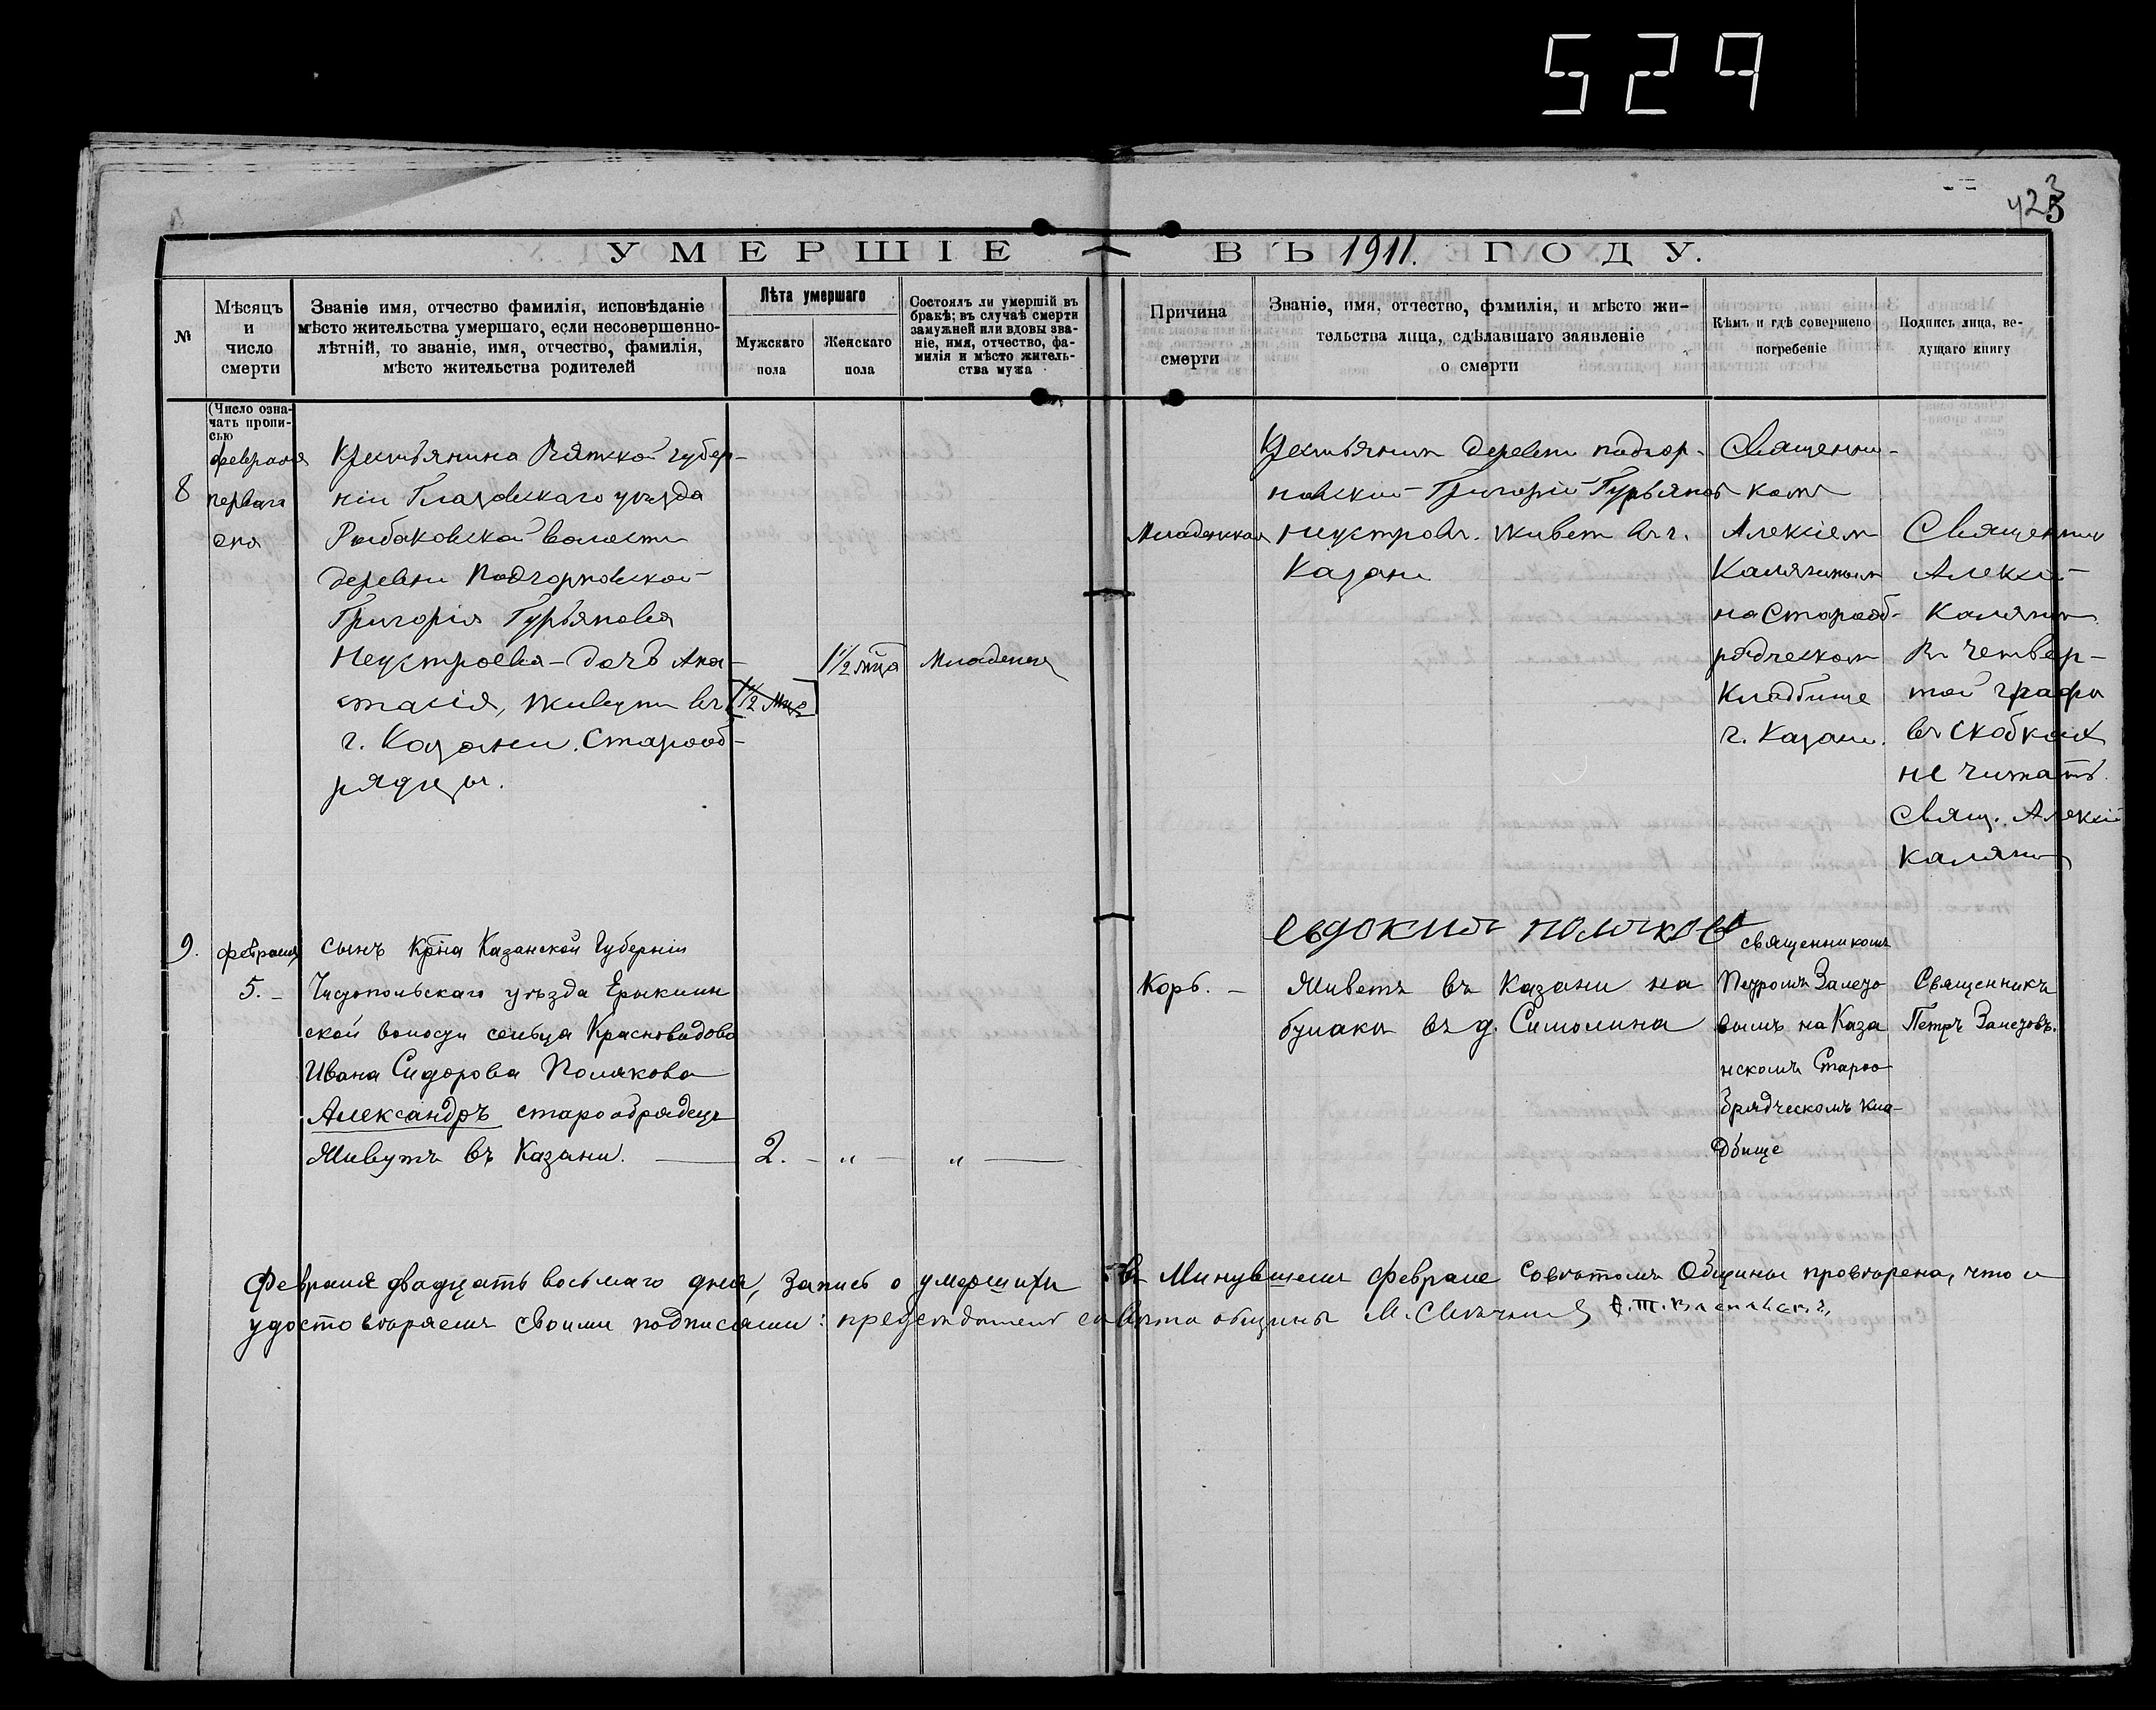 529
423
УМЕРШІЕ ВЪ 1911. ГОДУ.
№
Мѣсяцъ
и
число
смерти
Званіе имя, отчество фамилія, исповѣданіе
мѣсто жительства умершаго, если несовершенно-
лѣтній, то званіе, имя, отчество, фамилія,
мѣсто жительства родителей
Лѣта умершаго
Мужскаго
пола
Женскаго
пола
Состоялъ ли умершій въ
бракѣ; въ случаѣ смерти
замужней или вдовы зва-
ніе, имя, отчество, фа-
милія и мѣсто житель-
ства мужа
Причина
смерти
Званіе, имя, отчество, фамилія, и мѣсто жи-
тельства лица, сдѣлавшаго заявленіе
о смерти
Кѣмъ и гдѣ совершено
погребеніе
Подпись лица, ве-
дущаго книгу
(Число озна-
чать пропи-
сью
8
февраля
перваго
дня
Крестьянина Вятской губер-
ніи Глазовскаго уѣзда
Рыбаковской волости
деревни Подгорновской
Григорія Гурьянова
Неустроева - дочь Ана-
стасія, живутъ въ
г. Казани. Старооб-
рядцы.
[1 1/2 мца]
1 1/2 мца
Младенецъ
Младенская
Крестьянинъ деревни подгор-
новской Григорій Гурьяновъ
Неустровъ. живетъ въ г.
Казани
Священни-
комъ
Алексіем
Калягинымъ
на Старооб-
рядческом
Кладбище
г. Казани.
Священник
Алексій
Калягин
В четвер-
той графы
въ скобках
не читать.
Свящ. Алексій
Калягин
9.
февраля
5. -
сынъ Кр-на Казанской Губерніи
Чистопольскаго уѣзда Ерыклин
ской волости сельца Красновидово
Ивана Сидорова Полякова
Александръ старообрядецъ
Живутъ въ Казани. —
2. - „ - „ —
Корь. -
Евдокия полякова
Живетъ въ Казани на
булаке въ д. Симолина
священникомъ
Петромъ Залето
вымъ на Каза
нскомъ Староо
брядческомъ кла-
дбище
Священникъ
Петръ Залетовъ.
Февраля двадцать восьмаго дня, Запись о умерших въ Минувшем феврале Советомъ Общины проверена, что и
удостоверяемъ своими подписями: председатель совѣта общины М.